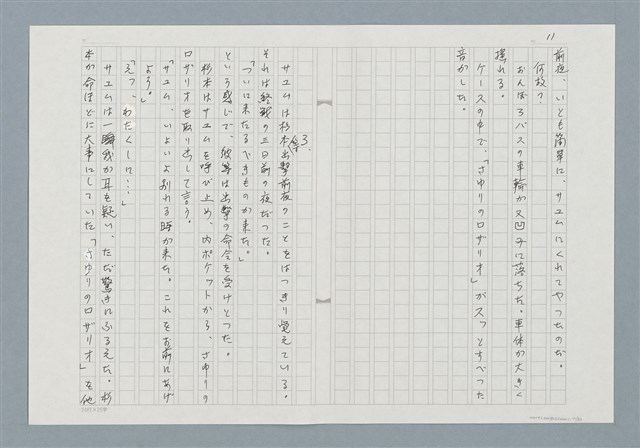 11
前夜、いとも簡単に、サユムにくれてやつたのだ。
何故？
おんぼろバスの車輪が又凹みに落ちた。車体が大きく
揺れる。
ケースの中で、「さゆりのロザリオ」がスッとすべった
音がした。
3.
サユムは杉本出撃前夜のことをはつきり覚えている。
それは終戦の三日前の夜だつた。
「ついに来たるべきものが来た。」
という感じで、彼等は出撃の命令を受けとつた。
杉本はサユムを呼び止め、内ポケットから、さゆりの
ロザリオを取り出して言う。
「サユム、いよいよ別れる時が来た。これをお前にあげ
よう。」
「えつ、わたくしに…」
サユムは一瞬我が耳を疑い、ただ驚きにふるえた。杉
本が命ほどに大事にしていた「さゆりのロザリオ」を他